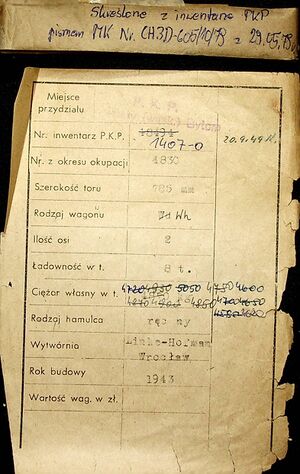 Skreślone z inwentarza PKP
pismem MK Nr. CH3D-605/10/79 z 29.05.79
Miejsce
przydziału
P. K. P.
(wąsk.) Bytom
Nr. inwentarz P.K.P. 18494
1407-0 20.9.49
Nr. z okresu okupacji 4830
Szerokość toru 785 mm
Rodzaj wagonu Wh
Ilość osi 2
Ładowność w t. 8 t.
Ciężar własny w t. 4720 4930 5050 4750 4600
4850 4700 4650
Rodzaj hamulca ręczny
Wytwórnia Linke-Hofman
Wrocław
Rok budowy 1943
Wartość wag. w zł.